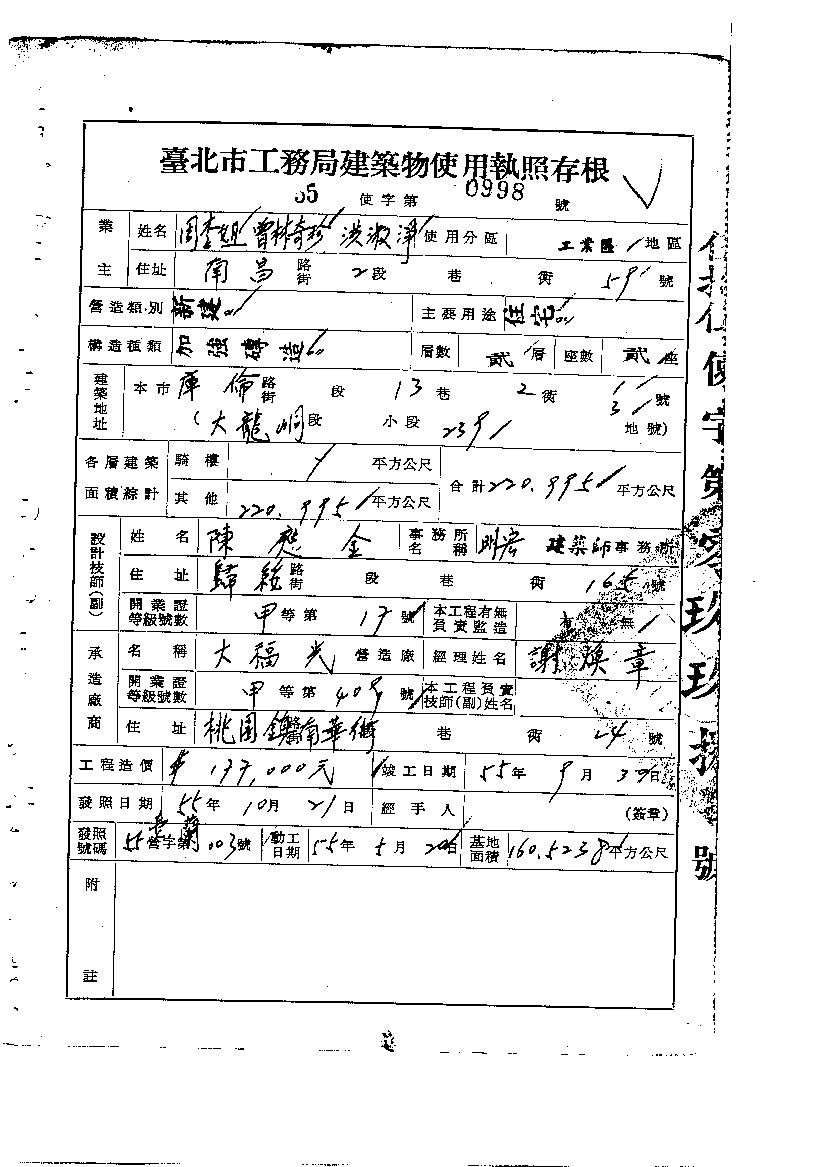 臺北市工務局建築物使用執照存根
55 使字第 0998 號
業主 姓名 周李 曾林奇珍 洪淑淨 使用分區 工業區 地區
住址 南昌 路街 2段 巷 衖 59 號
營造類別 新建 主要用途 住宅
構造種類 加強磚造 層數 貳層 座數 貳座
建築地址 本市 庫倫 路街 段 13巷 2衖 1 3 號
(大龍峒段 小段 239 地號)
各層建築面積綜計 騎樓 平方公尺 合計 220.995 平方公尺
其他 220.995 平方公尺
設計技師(副) 姓名 陳應金 事務所名稱 明宏 建築師事務所
住址 歸綏 路街 段 巷 衖 165 號
開業證等級號數 甲等第 17 號 本工程有無負責監造 無
承造廠商 名稱 大福光 營造廠 經理姓名 謝煥章
開業證等級號數 甲等第 409 號 本工程負責技師(副)姓名
住址 桃園 鎮南華街 巷 衖 24 號
工程造價 177,000元 竣工日期 55年 9月 30日
發照日期 55年 10月 21日 經手人 (簽章)
發照號碼 55營字第 003號 動工日期 55年 5月 20日 基地面積 160.5238 平方公尺
附註
使字第零玖玖捌號